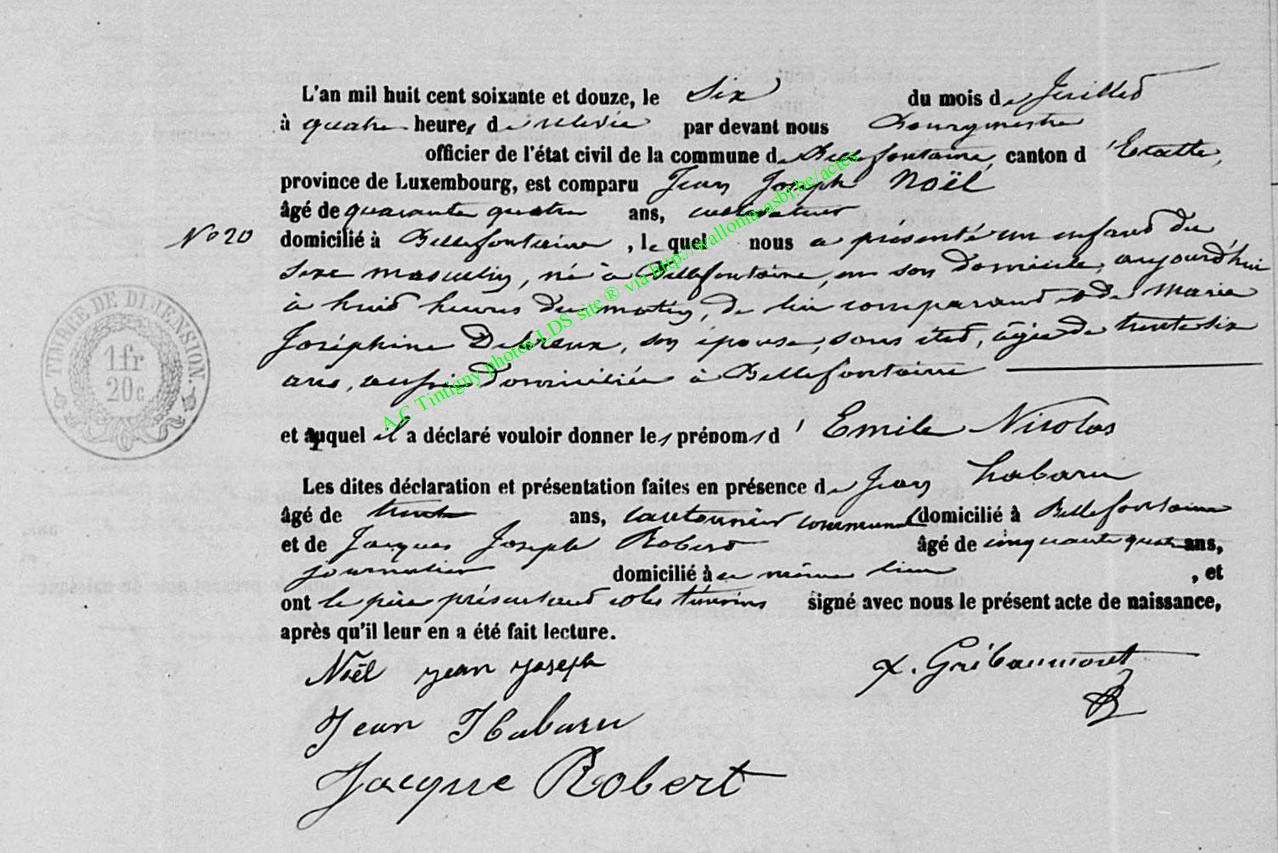 L'an mil huit cent soixante et douze, le Six du mois de Juillet
à quatre heures de relevée par devant nous Bourgmestre
officier de l'état civil de la commune de Bellefontaine, canton d'Etalle,
province de Luxembourg, est comparu Jean Joseph Noël
âgé de quarante quatre ans, cultivateur
No 20 domicilié à Bellefontaine, lequel nous a présenté un enfant du
sexe masculin, né à Bellefontaine, en son domicile, aujourd'hui
à huit heures du matin, de lui comparant et de Marie
Joséphine son épouse, sans état, âgée de trente six
ans, aussi domiciliée à Bellefontaine
et auquel il a déclaré vouloir donner les prénoms d'Emile Nicolas
Les dites déclaration et présentation faites en présence de Jean Habaru
âgé de trente ans, cantonnier communal domicilié à Bellefontaine
et de Jacques Joseph Robert âgé de cinquante quatre ans,
journalier domicilié à ce même lieu, et
ont le père présentant et les témoins signé avec nous le présent acte de naissance,
après qu'il leur en a été fait lecture.
Noël Jean Joseph
Jean Habaru
Jacque Robert
TIMBRE DE DIMENSION.
1 fr
20 c.
A.C Tintigny photos LDS site ® via http://wallonia.asbl.be/actes